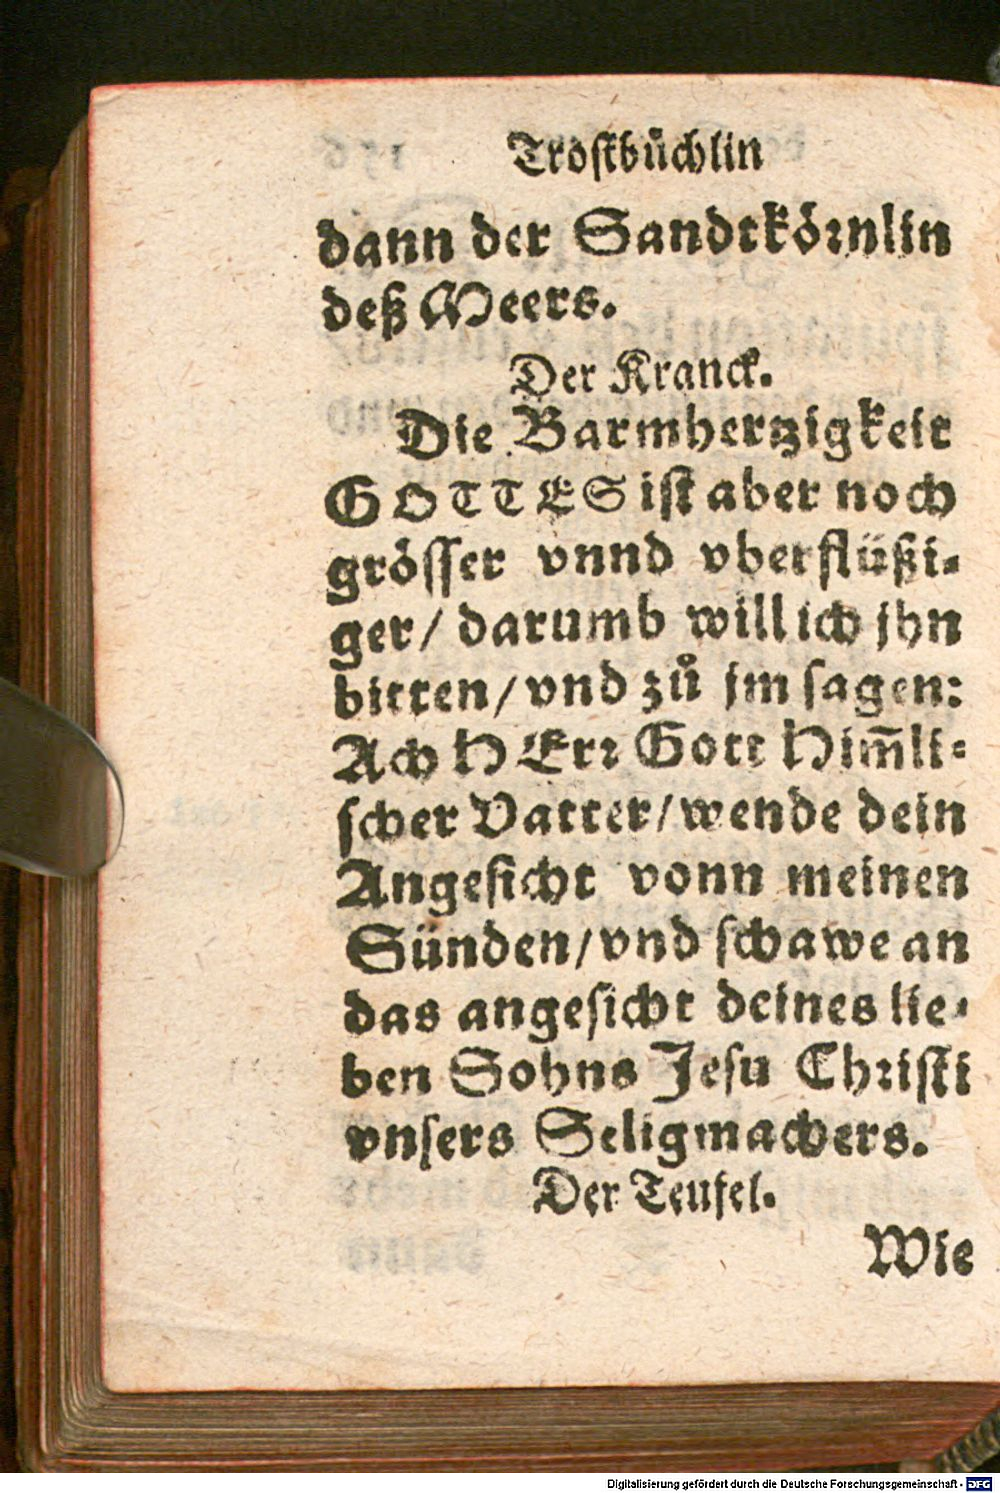 Trostbůchlin
dann der Sandtkörnlin
deß Meers.
Der Kranck.
Die Barmhertzigkeit
GOTTES ist aber noch
grösser vnnd vberflüßi-
ger/ darumb will ich jhn
bitten/ vnd zů jm sagen:
Ach HErr Gott Him̃li-
scher Vatter/ wende dein
Angesicht vonn meinen
Sünden/ vnd schawe an
das angesicht deines lie-
ben Sohns Jesu Christi
vnsers Seligmachers.
Der Teufel.
Wie
Digitalisierung gefördert durch die Deutsche Forschungsgemeinschaft - DFG